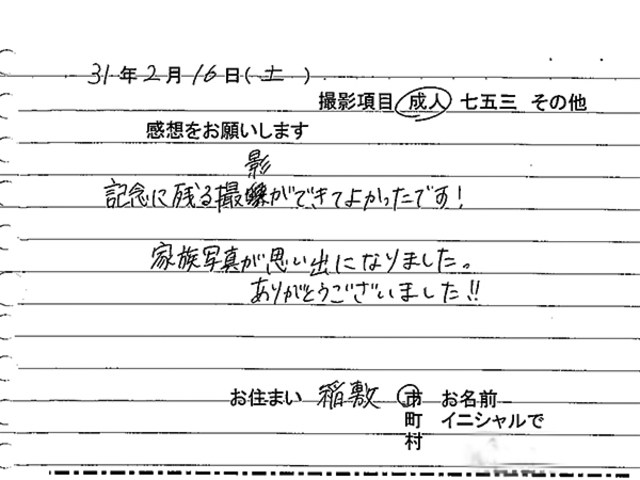 31年2月16日(土)
撮影項目 成人 七五三 その他
感想をお願いします
影
記念に残る撮ができてよかったです!
家族写真が思い出になりました。
ありがとうございました!!
お住まい 稲敷 市 お名前
町 イニシャルで
村